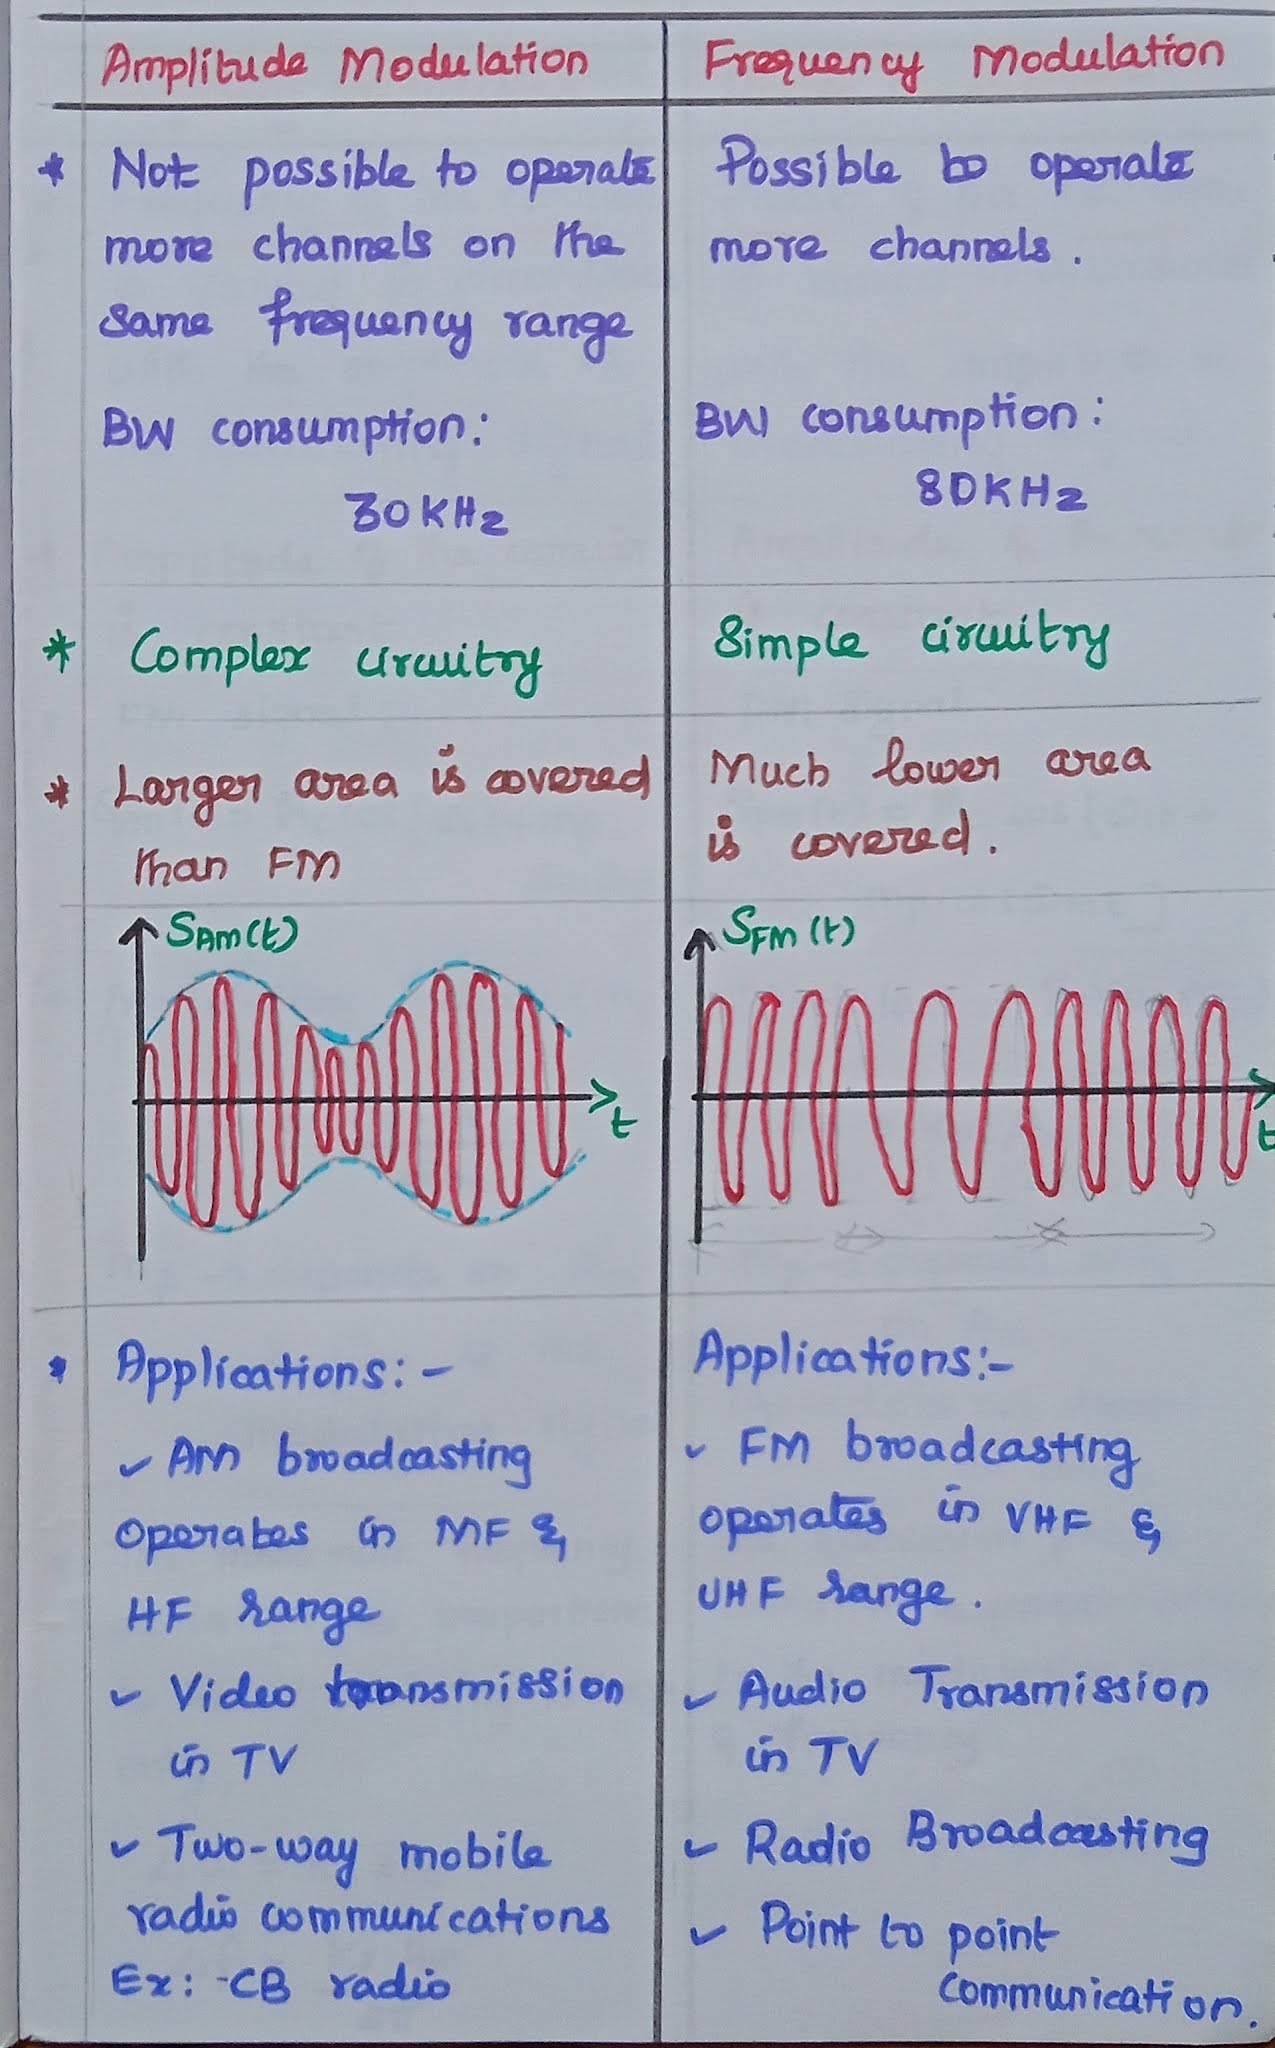 Amplitude Modulation
Frequency Modulation
* Not possible to operate
more channels on the
same frequency range
BW consumption:
30KHz
Possible to operate
more channels.
BW consumption:
80KHz
* Complex circuitry
Simple circuitry
* Larger area is covered
than FM
Much lower area
is covered.
SAM(t)
t
SFM(t)
t
* Applications:-
✓ AM broadcasting
operates in MF &
HF range
✓ Video transmission
in TV
✓ Two-way mobile
radio communications
Ex: -CB radio
Applications:-
✓ FM broadcasting
operates in VHF &
UHF range.
✓ Audio Transmission
in TV
✓ Radio Broadcasting
✓ Point to point
communication.